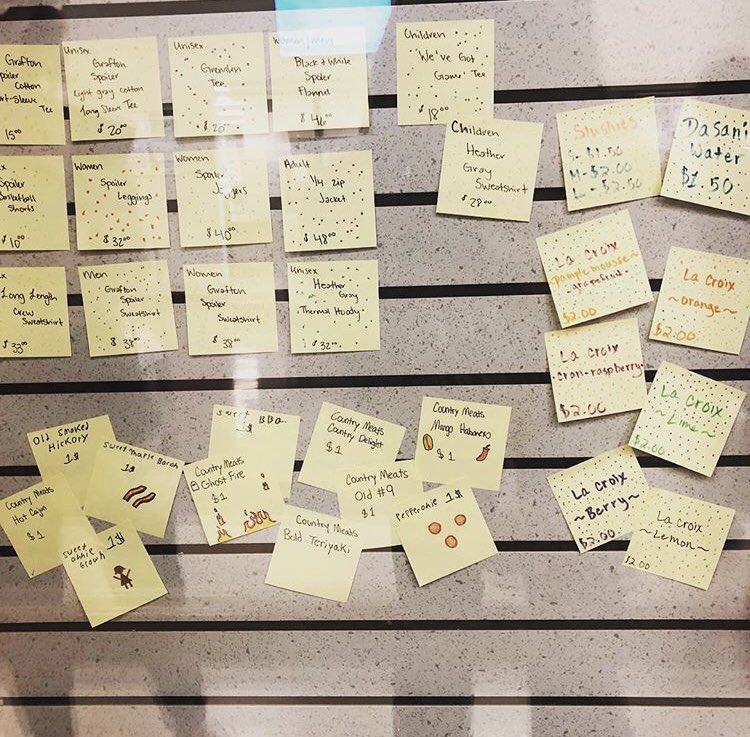 Grafton
Spoiler
Cotton
Sleeve
Tee
15.00
Unisex
Grafton
Spoiler
Light gray cotton
Long Sleeve Tee
$ 20.00
Unisex
Gremlin
Tee
$ 20.00
Women/men
Black + White
Spoiler
Flannel
$ 46.00
Children
"We've Got
Game" Tee
$ 18.00
Children
Heather
Gray
Sweatshirt
$ 28.00
Spoiler
Basketball
Shorts
$ 10.00
Women
Spoiler
Leggings
$ 32.00
Women
Spoiler
Joggers
$ 40.00
Adult
1/4 zip
Jacket
$ 48.00
Long Length
Crew
Sweatshirt
$ 33.00
Men
Grafton
Spoiler
Sweatshirt
$ 38.00
Women
Grafton
Spoiler
Sweatshirt
$ 38.00
Unisex
Heather
Gray
Thermal Hoody
$ 32.00
Slushies
S - $1.50
M - $2.00
L - $2.50
Dasani
Water
$1.50
La Croix
pamplemousse~
grapefruit
$2.00
La Croix
~orange~
$2.00
La Croix
·cran-raspberry·
$2.00
La Croix
~Lime~
$2.00
La Croix
~Berry~
$2.00
La Croix
~Lemon~
$2.00
Old Smoked
Hickory
1$
Sweet Maple Bacon
1$
Country Meats
Hot Cajun
$1
Sweet
1$
Sweet BBQ
1$
Country Meats
Ghost Fire
$1
Country Meats
Country Delight
$1
Country Meats
Mango Habanero
$1
Country Meats
Old #9
$1
Country Meats
Bold Teriyaki
Pepperonie 1$